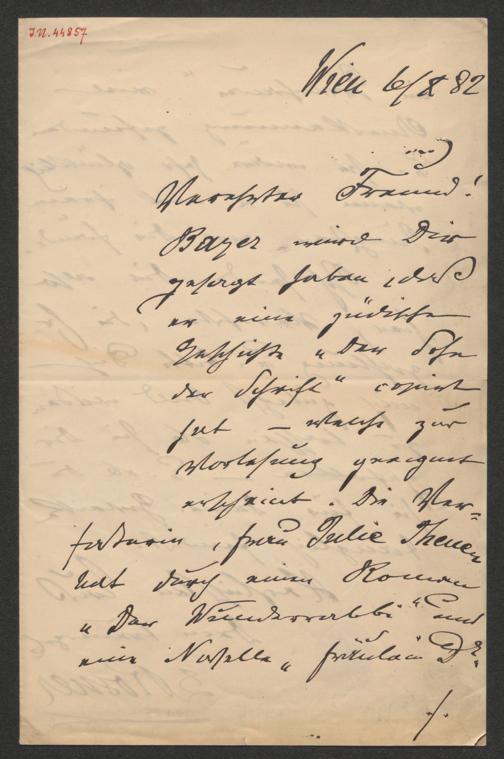 J.N. 44857
Wien 6/X 82
Verehrter Freund!
Bayer wird Dir
gesagt haben, daß
er eine jüdische
Geschichte „Der Sohn
der Schrift" copirt
hat – welche zur
Vorlesung geeignet
erscheint. Die Ver-
fasserin, Frau Julie Thenen
hat durch einen Roman
„Der Wunderrabbi" und
eine Novelle „Fräulein Dr